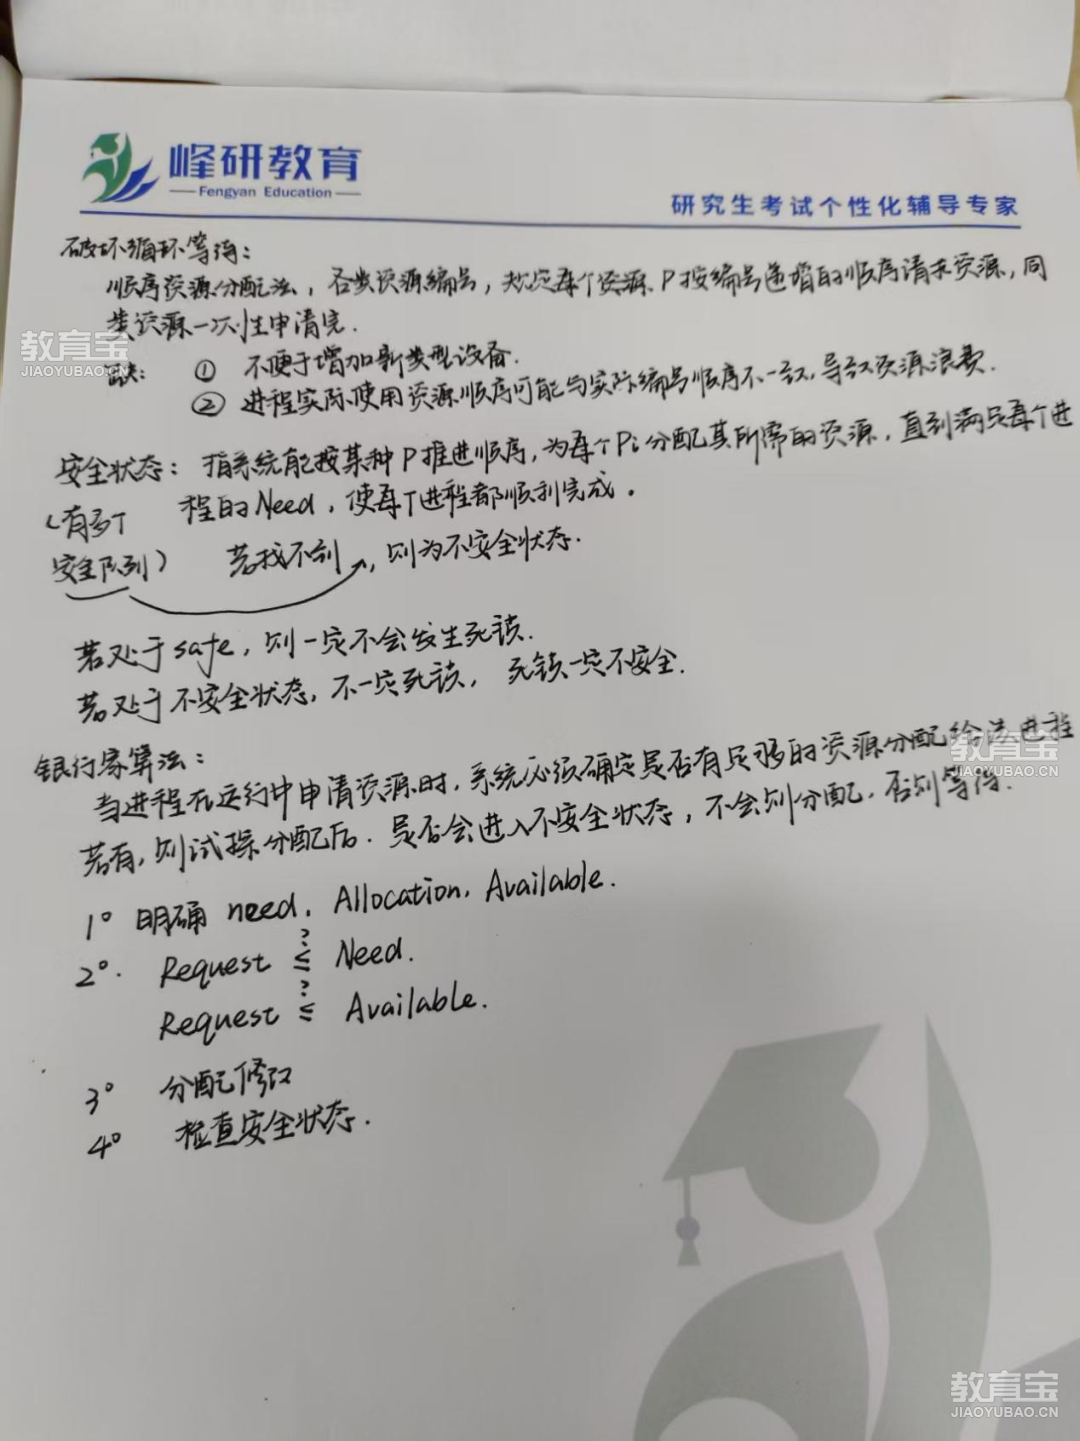 峰研教育
Fengyan Education
研究生考试个性化辅导专家
破坏循环等待：
顺序资源分配法，各类资源编号，规定每个资源P按编号递增的顺序请求资源，同
类资源一次性申请完.
教育宝
JIAOYUBAO.CN
缺： ① 不便于增加新类型设备.
② 进程实际使用资源顺序可能与实际编号顺序不一致，导致资源浪费.
安全状态：指系统能按某种P推进顺序，为每个Pi分配其所需的资源，直到满足每个进
（有多个 程的Need，使每个进程都顺利完成。
安全队列） 若找不到，则为不安全状态.
若处于safe，则一定不会发生死锁.
若处于不安全状态，不一定死锁， 死锁一定不安全.
银行家算法：
当进程在运行中申请资源时，系统必须确定是否有足够的资源分配给该进程
教育宝
JIAOYUBAO.CN
若有，则试探分配后.是否会进入不安全状态，不会则分配.否则等待.
1° 明确 need, Allocation, Available.
2°. Request ≤? Need.
Request ≤? Available.
3° 分配修改
4° 检查安全状态.
教育宝
JIAOYUBAO.CN